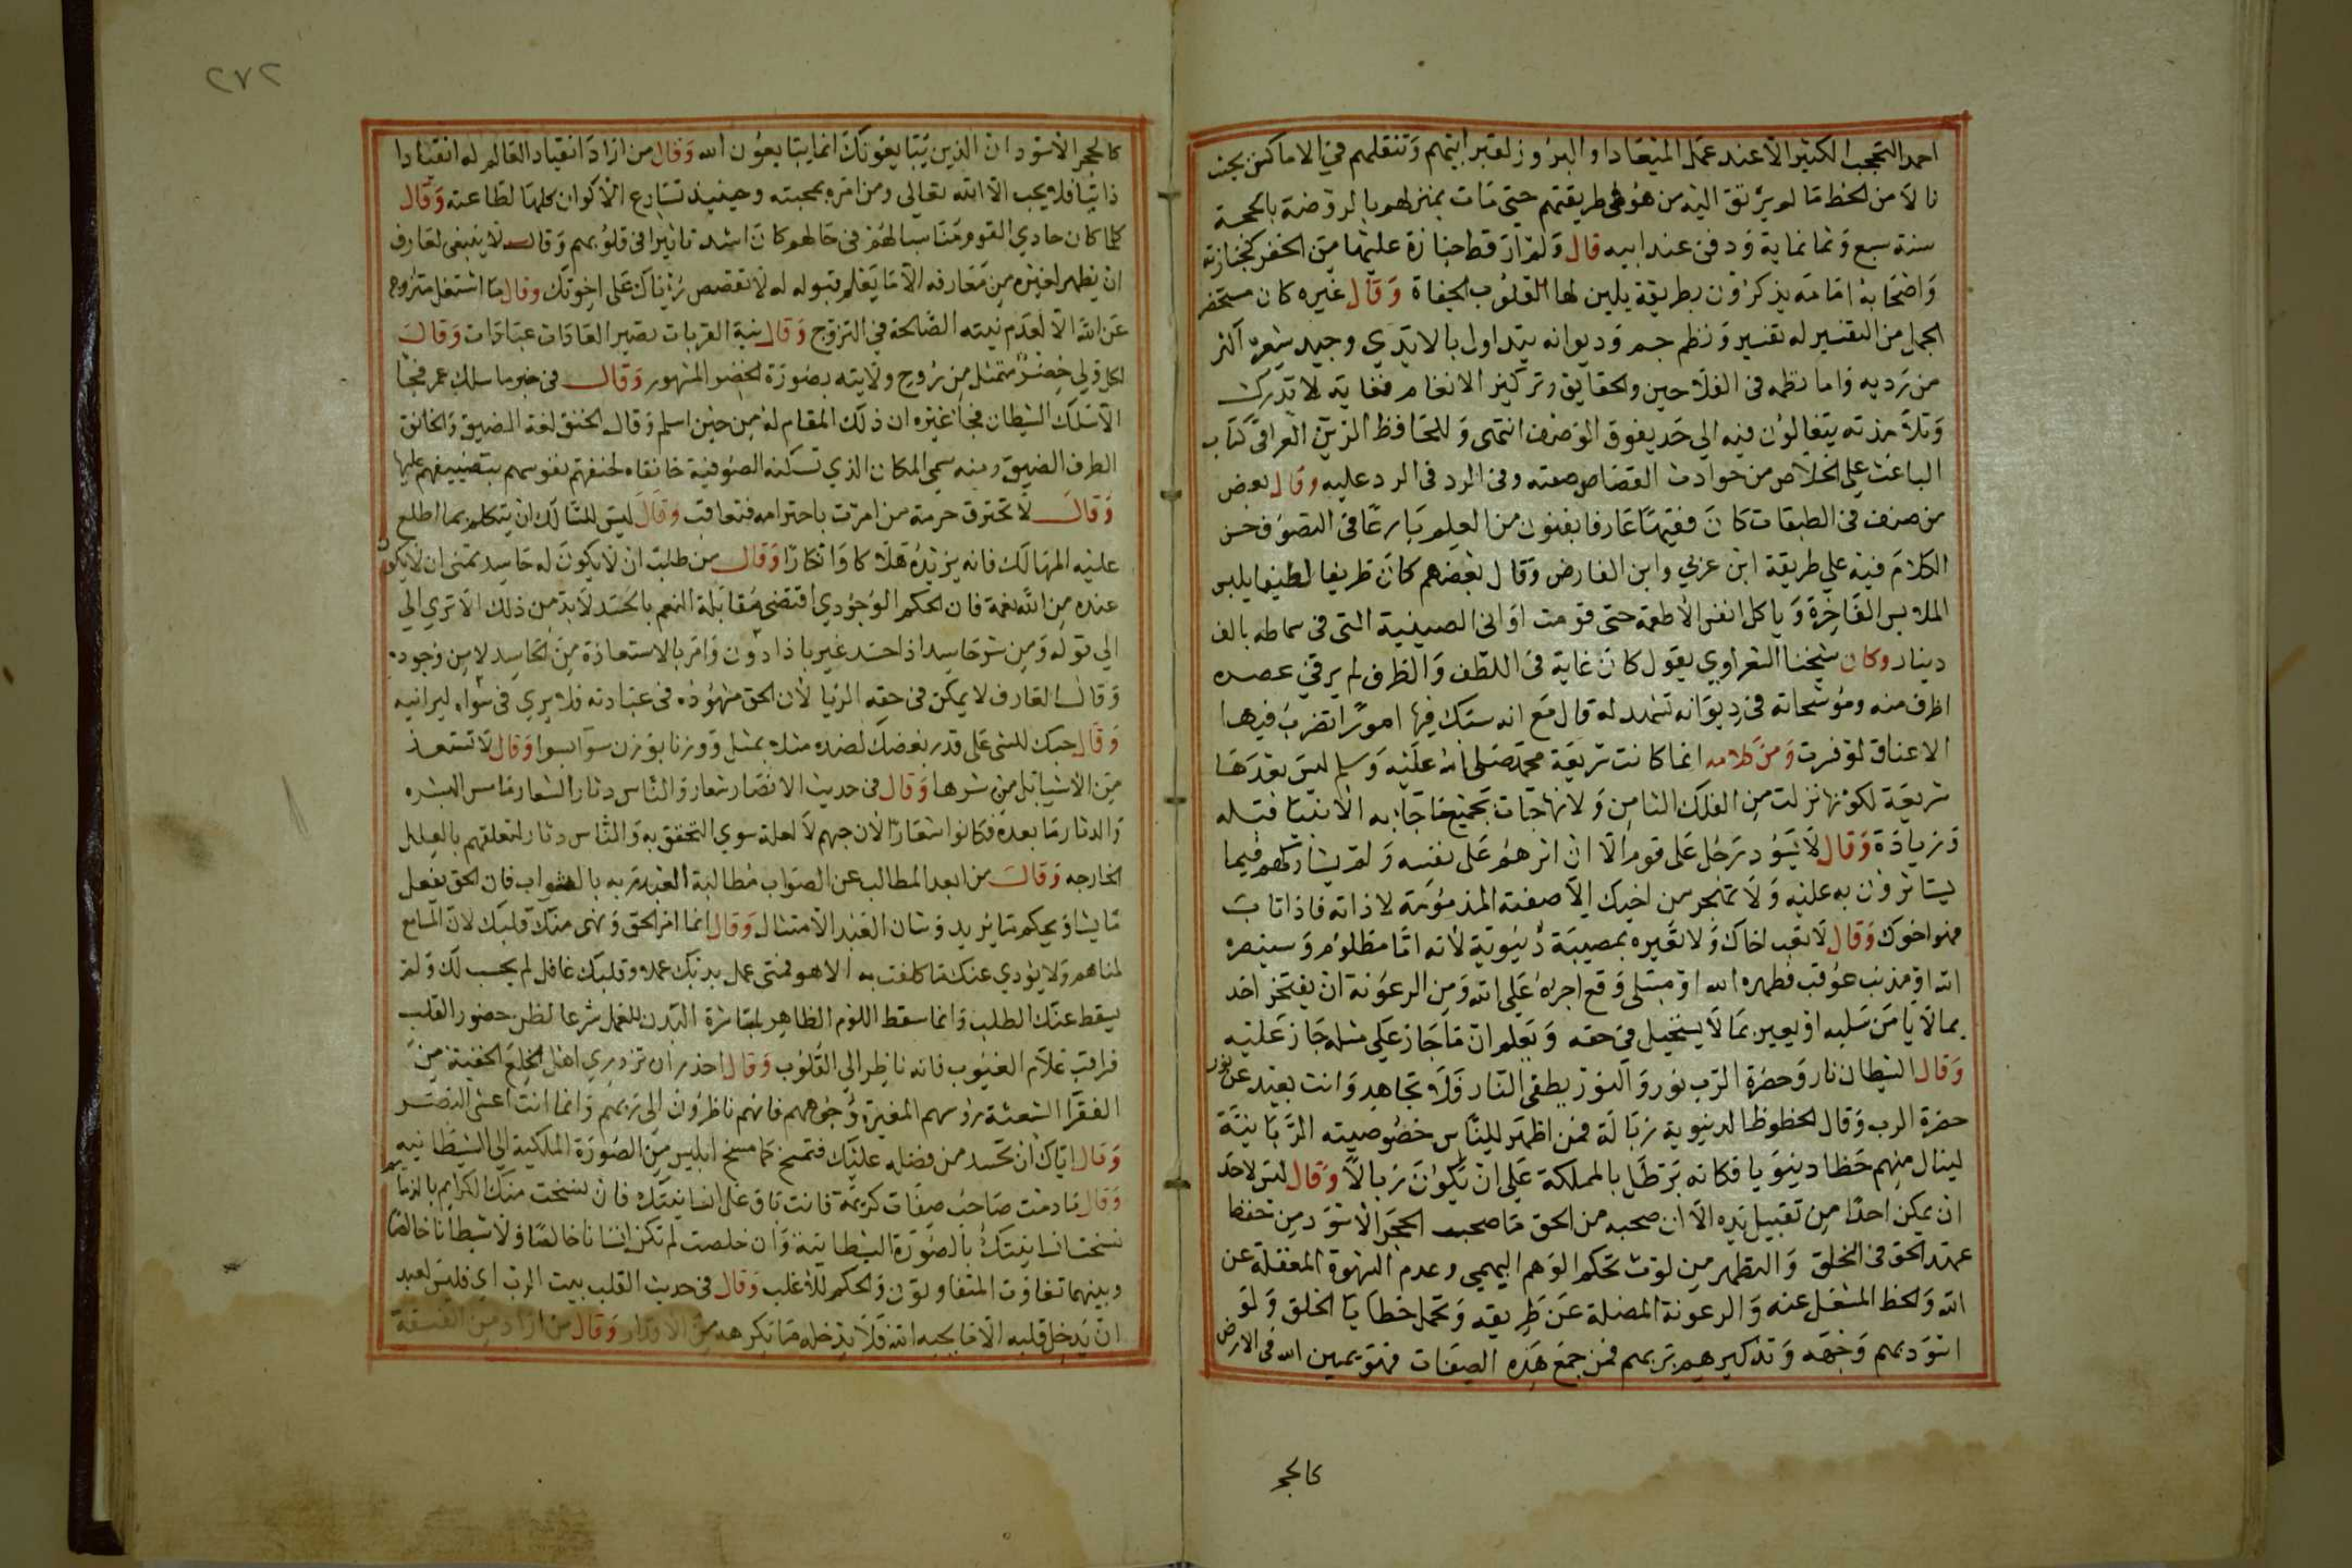 احمد التحجب الكثير الا عند عمل الميعاد او البروز لقبر ابيهم وتنقلهم في الاماكن بحيث
نالا من الحظ ما لم يرتق اليه من هو في طريقتهم حتى مات بمنزلهم بالروضة بالحجة
سنة سبع وثمانماية ودفن عند ابيه قال ولم ار قط جنازة عليها من الخفر كجنازته
واصحابه امامه يذكرون بطريقة يلين لها القلوب الجفاة وقال غيره كان مستحضر
الجمل من التفسير له تفسير ونظم جم وديوانه يتداول بالايدي وجيد شعره اكثر
من رديه واما نظمه في التلاحين والحقايق وتركيز الانغام فغاية لا تدرك
وتلامذته يتغالون فيه الي حد يفوق الوصف انتهى وللحافظ الزين العراقي كتاب
الباعث على الخلاص من حوادث القصاص صنفه وفي الرد عليه وقال بعض
من صنف في الطبقات كان فقيها عارفا بفنون من العلم بارعا في التصوف حسن
الكلام فيه علي طريقة ابن عربي وابن الفارض وقال بعضهم كان ظريفا لطيفا يلبس
الملابس الفاخرة وياكل انفس الاطعمة حتى قومت اواني الصينية التي في سماطه بالف
دينار وكان شيخنا الشعراوي يقول كان غاية في اللطف والظرف لم ير في عصره
اظرف منه وموشحاته في ديوانه تشهد له قال مع انه سبك فيها امورا تضرب فيها
الاعناق لو فسرت ومن كلامه انما كانت شريعة محمد صلى الله عليه وسلم ليس بعدها
شريعة لكونها نزلت من الفلك الثامن ولانها جات بجميع ما جا به الانبيا قبله
وزيادة وقال لا يسود رجل على قوم الا ان اثرهم على نفسه ولم يشاركهم فيما
يستاثرون به عليه ولا تهجر من اخيك الا صفته المذمومة لا ذاته فاذا تاب
فهو اخوك وقال لا تعب اخاك ولا تعيره بمصيبة دنيوية لانه اما مظلوم وسينصره
الله او مذنب عوقب فطهره الله او مبتلى وقع اجره على الله ومن الرعونة ان يفتخر احد
بما لا يامن سلبه او يعير بما لا يستحيل في حقه ويعلم ان ما جاز على مثله جاز عليه
وقال الشيطان نار وحضرة الرب نور والنور يطفي النار فلا تجاهد وانت بعيد عن نور
حضرة الرب وقال الحظوظ الدنيوية زبالة فمن اظهر للناس خصوصيته الربانية
لينال منهم حظا دينويا فكانه برطل بالمملكة على ان يكون زبالا وقال ليس لاحد
ان يمكن احدا من تقبيل يده الا ان صحبه من الحق ما صحب الحجر الاسود من حفظ
عهد الحق في الخلق والتطهر من لوث تحكم الوهم البهيمي وعدم الشهوة المغفلة عن
الله والحظ المشغل عنه والرعونة المضلة عن طريقه وتحمل خطايا الخلق ولو
اسود بهم وجهه وتذكيرهم بربهم فمن جمع هذه الصفات فهو يمين الله في الارض
كالحجر
٢٧٢
كالحجر الاسود ان الذين يبايعونك انما يبايعون الله وقال من اراد انقياد العالم له انقيادا
ذاتيا فلا يحب الا الله تعالى ومن امره بمحبته وحينيذ تسارع الاكوان كلها لطاعته وقال
كلما كان حادي القوم مناسبا لهم في حالهم كان اشد تاثيرا في قلوبهم وقال لا ينبغي لعارف
ان يظهر لغيره من معارفه الا ما يعلم قبوله له لا تقصص رؤياك على اخوتك وقال ما اشتغل متزوج
عن الله الا لعدم نيته الصالحة في التزوج وقال نية القربات تصير العادات عبادات وقال
لكل ولي خضر متمثل من روح ولايته بصورة الخضر المشهور وقال في خبر ما سلك عمر فجا
الا سلك الشيطان فجا غيره ان ذلك المقام له من حين اسلم وقال الخنق لغة الضيق والخانق
الطرف الضيق ومنه سمي المكان الذي تسكنه الصوفية خانقاه لخنقهم نفوسهم بتضييقهم عليها
وقال لا تخترق حرمة من امرت باحترامه فتعاقب وقال ليس للسالك ان يتكلم بما اطلع
عليه المهالك فانه يزيده هلاكا وانكارا وقال من طلب ان لا يكون له حاسد تمنى ان لا يكون
عنده من الله نعمة فان الحكم الوجودي اقتضى مقابلة النعم بالحسد لا بد من ذلك الا تري الي
الي قوله ومن شر حاسد اذا حسد عبر باذا دون وامر بالاستعاذة من الحاسد لا من وجوده
وقال العارف لا يمكن في حقه الريا لان الحق مشهوده في عبادته فلا يري في سواه ليرائيه
وقال حبك للشي على قدر بغضك لضده مثلا بمثل ووزنا بوزن سوا بسوا وقال لا تستعذ
من الاشيا بل من شرها وقال في حديث الانصار شعار والناس دثار الشعار ما مس البشره
والدثار ما بعده فكانوا شعارا لان حبهم لا لعلة سوي التحقق به والناس دثار لتعلقهم بالعلل
الخارجه وقال من ابعد المطالب عن الصواب مطالبة العبد ربه بالثواب فان الحق يفعل
ما يشا ويحكم ما يريد وشان العبد الامتثال وقال انما امر الحق ونهى منك قلبك لان السامع
لمناهم ولا يؤدي عنك ما كلفت به الا هو فمتى عمل بدنك عملا وقلبك غافل لم يحسب لك ولم
يسقط عنك الطلب وانما سقط اللوم الظاهر لمباشرة البدن للعمل شرعا لظن حضور القلب
فراقب علام الغيوب فانه ناظر الي القلوب وقال احذر ان تزدري اهل الخلع الخفية من
الفقرا الشعثة رؤسهم المغبرة وجوههم فانهم ناظرون الى ربهم وانما انت اعشى البصر
وقال اياك ان تحسد من فضله عليك فتمسخ كما مسخ ابليس من الصورة الملكية الي الشيطانيه
وقال ما دمت صاحب صفات كريمة فانت باق على انسانيتك فان نسخت منك الكرايم بالذمايم
نسخت انسانيتك بالصورة الشيطانية وان خلصت لم تكن انسانا خالصا ولا شيطانا خالصا
وبينهما تفاوت المتفاوتون والحكم للاغلب وقال في حديث القلب بيت الرب اي فليس لعبد
ان يدخل قلبه الا ما يحبه الله فلا يدخله ما يكرهه من الاقذار وقال من اراد